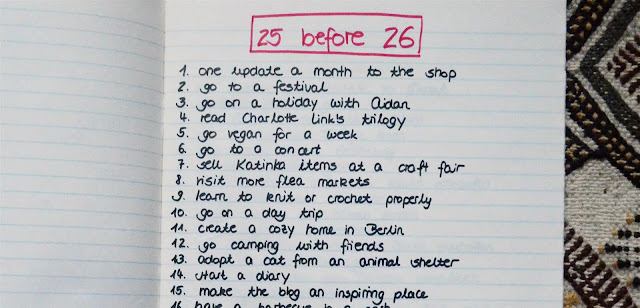 25 before 26
1. one update a month to the shop
2. go to a festival
3. go on a holiday with Aidan
4. read Charlotte Link's trilogy
5. go vegan for a week
6. go to a concert
7. sell Katinka items at a craft fair
8. visit more flea markets
9. learn to knit or crochet properly
10. go on a day trip
11. create a cozy home in Berlin
12. go camping with friends
13. adopt a cat from an animal shelter
14. start a diary
15. make the blog an inspiring place
16. have a barbecue in a